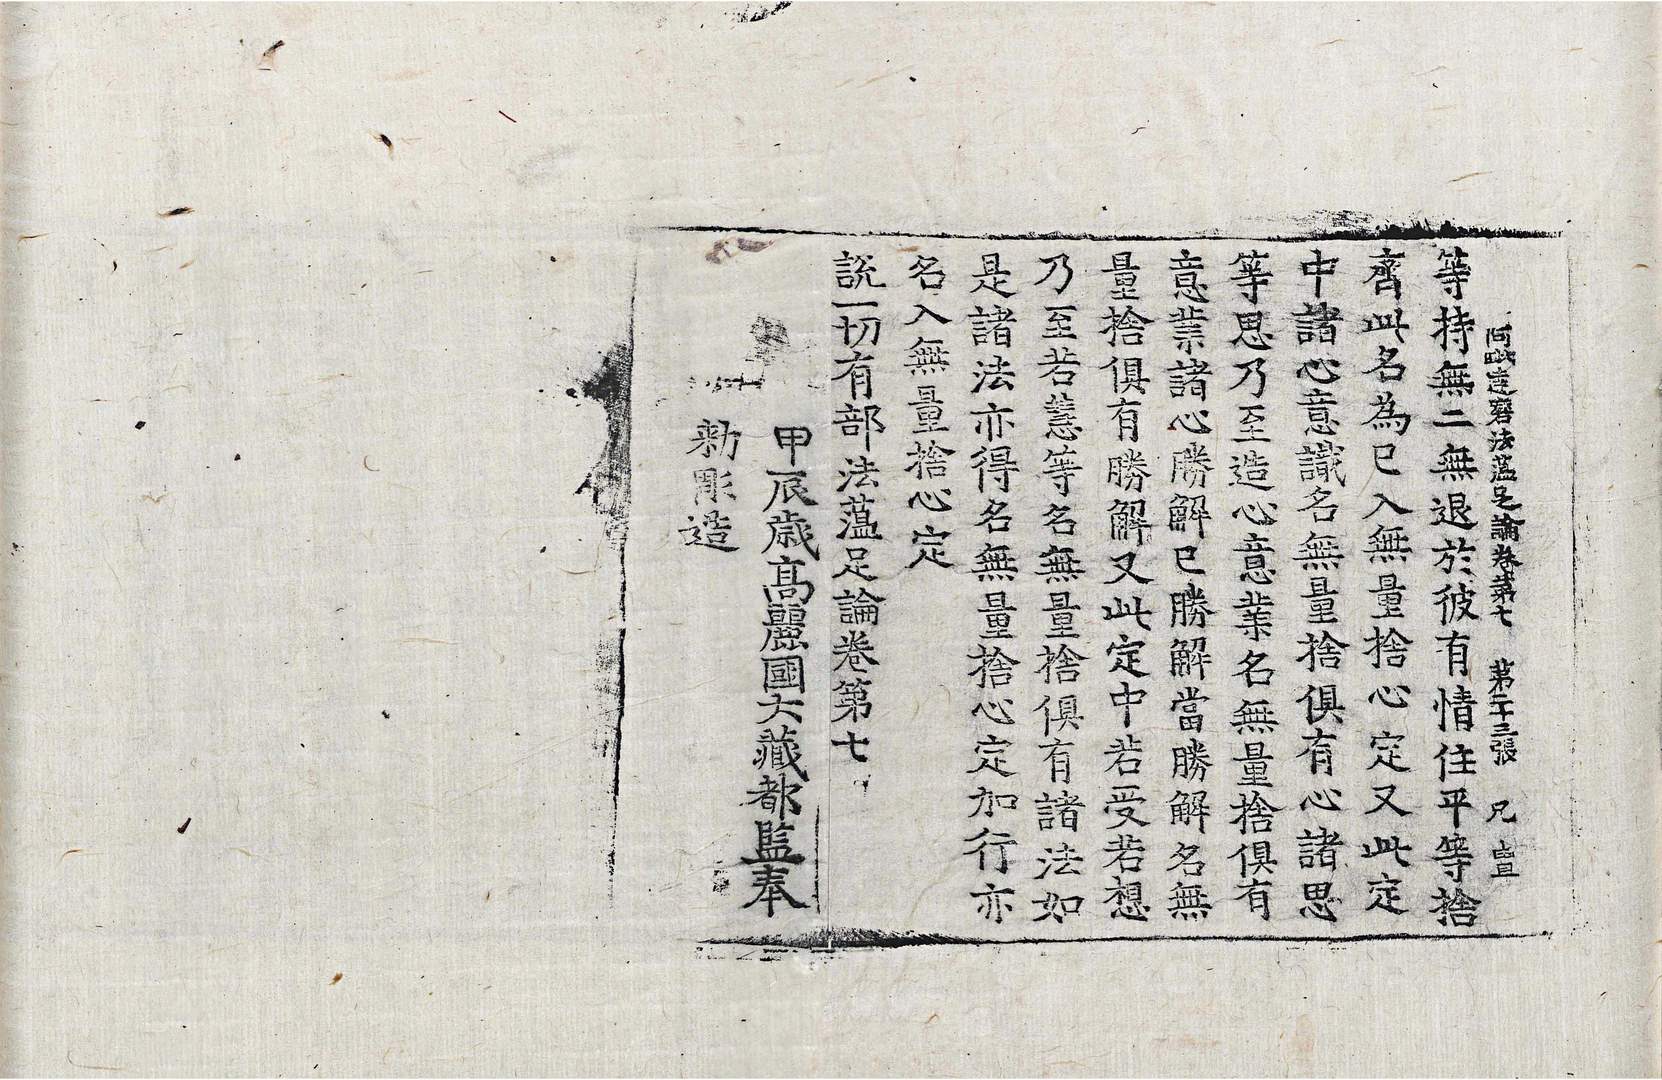 阿毗達磨法蘊足論卷第七 第二十三張 兄
等持無二無退於彼有情住平等捨
齊此名為已入無量捨心定又此定
中諸心意識名無量捨俱有心諸思
等思乃至造心意業名無量捨俱有
意業諸心勝解已勝解當勝解名無
量捨俱有勝解又此定中若受若想
乃至若慧等名無量捨俱有諸法如
是諸法亦得名無量捨心定加行亦
名入無量捨心定
說一切有部法蘊足論卷第七
甲辰歲高麗國大藏都監奉
勅彫造